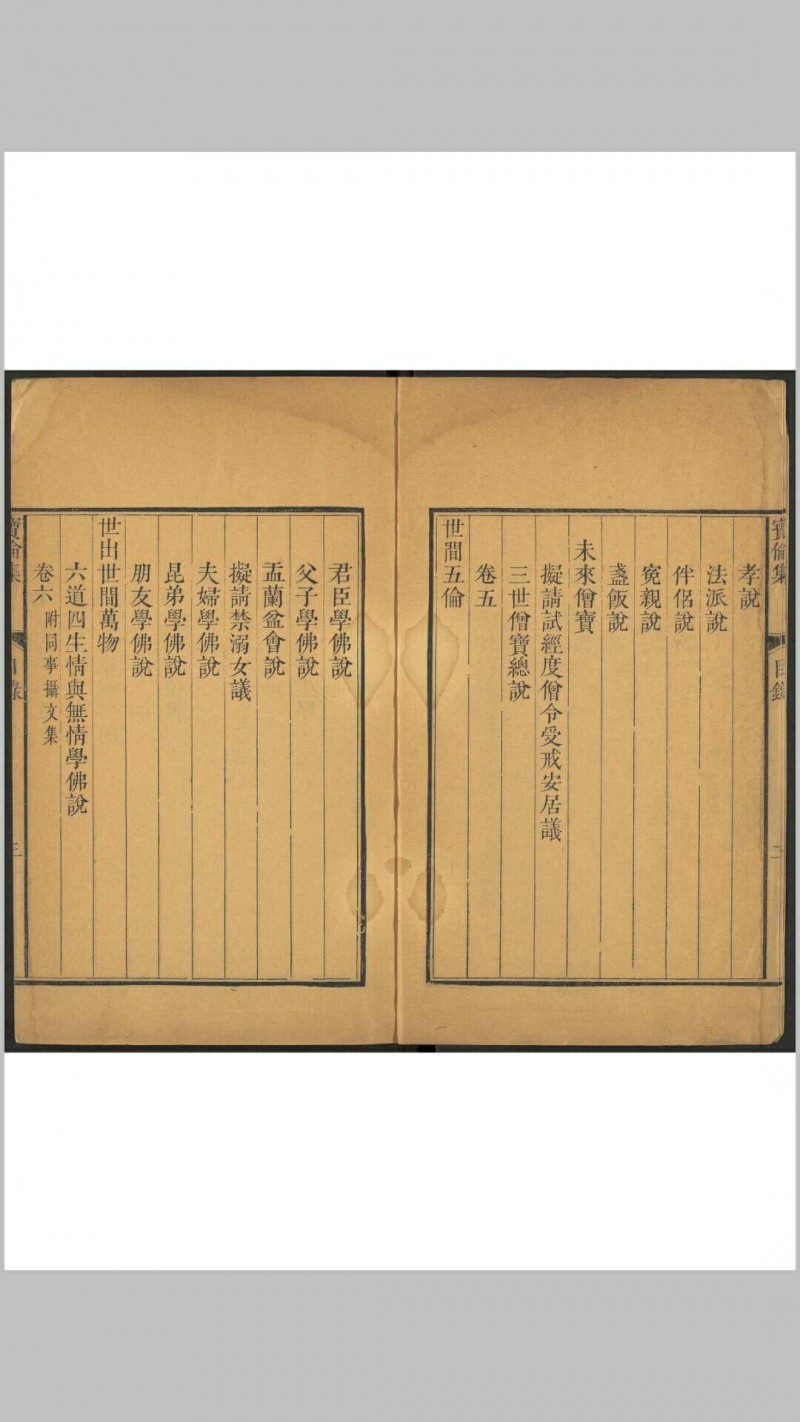 寶倫集
目錄
二
孝說
法派說
伴侶說
寃親說
盞飯說
未來僧寶
擬請試經度僧令受戒安居議
三世僧寶總說
卷五
世間五倫
君臣學佛說
父子學佛說
盂蘭盆會說
擬請禁溺女議
夫婦學佛說
昆弟學佛說
朋友學佛說
世出世間萬物
六道四生情與無情學佛說
卷六 附同事攝文集
寶倫集
目錄
三